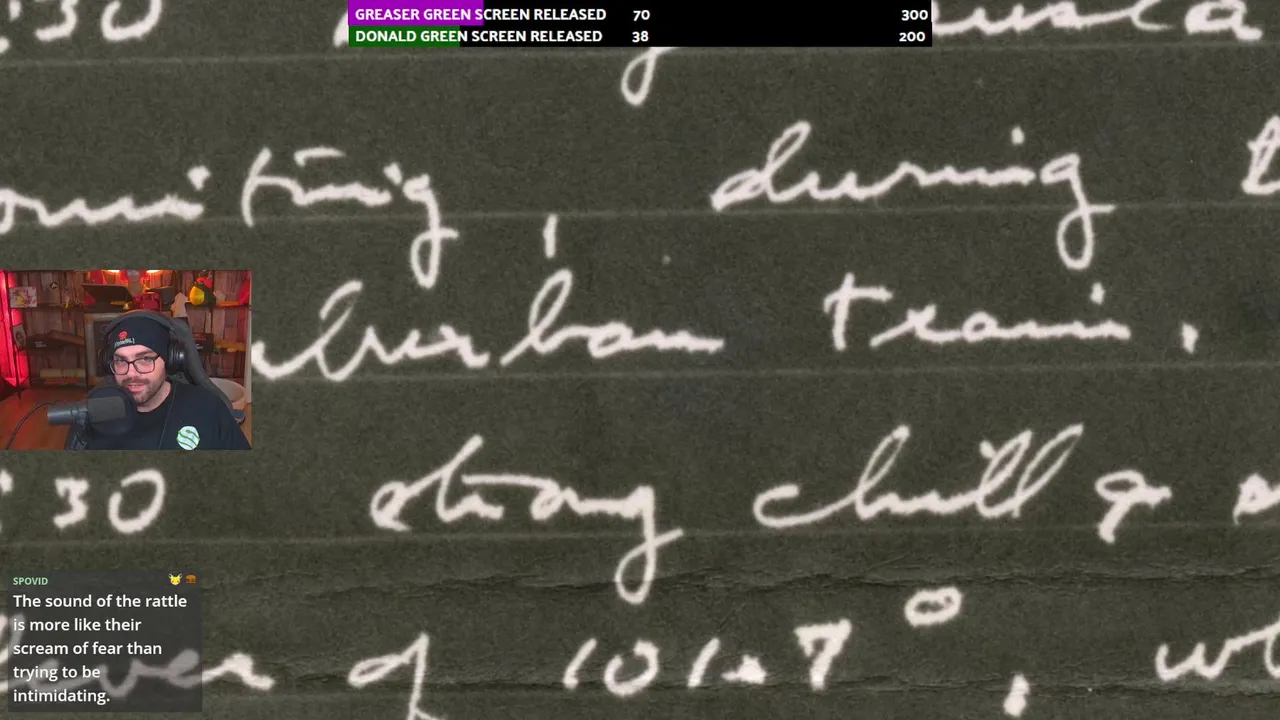 GREASER GREEN SCREEN RELEASED 70 300
DONALD GREEN SCREEN RELEASED 38 200
:30
during
urban train.
:30 strong chill &
of 101.7°,
SPOVID
The sound of the rattle
is more like their
scream of fear than
trying to be
intimidating.